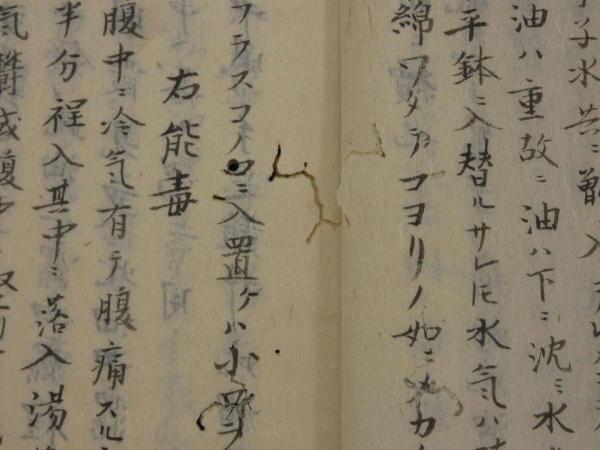 子水共ニ
油ハ重故ニ油ハ下ニ沈ミ水
平鉢ニ入替ルサレ𪜈水気ハ
綿ワタヲコヨリノ如ニ
フラスコノ口ニ入置ケハ小
右能毒
腹中ニ冷気有テ腹痛スル
半分程入其中ニ落入湯
気欝或腹